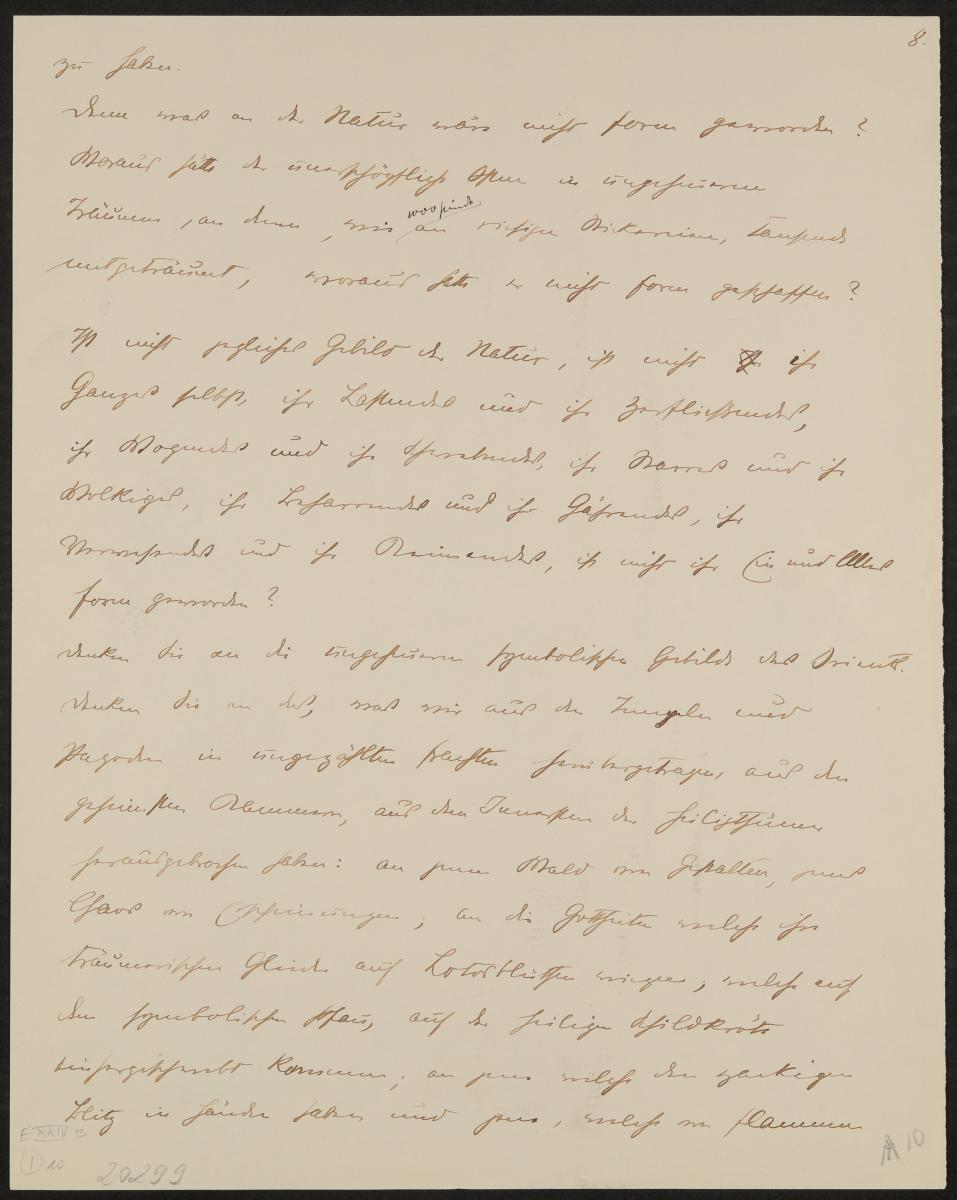 8.
zu haben.
Denn was an der Natur wäre nicht Form geworden?
Woraus hätte der unerschöpfliche Asien in ungeheueren
Träumen, an denen, wie an riesigen Miterinnen, Tausende
wovorinde
mitgeträumt, woraus hätte er nicht Form geschaffen?
Ist nicht jegliches Gebild der Natur, ist nicht ihr
Ganzes selbst, ihr Lastendes und ihr Zerfließendes,
ihr Wogendes und ihr Schwebendes, ihr Starres und ihr
Wolkiges, ihr Beharrendes und ihr Gährendes, ihr
Verwesendes und ihr Keimendes, ist nicht ihr Ein und Alles
Form geworden?
Denken Sie an die ungeheueren symbolischen Gebilde des Orients.
Denken Sie an das, was wir aus den Tempeln und
Pagoden in ungezählten Frachten herübergetragen, aus den
geheimsten Kammern, aus dem Innersten der Heiligthümer
herausgebrochen haben: an jenen Wald von Gestalten, jenes
Chaos von Erscheinungen; an die Gottheiten welche ihre
träumerischen Glieder auf Lotosblüthen wiegen, welche auf
dem symbolischen Pfau, auf der heiligen Schildkröte
einhergeschwebt kommen; an jene welche den zackigen
Blitz in Händen haben und jene, welche von Flammen
E XXIV B
1 10
20299
A 10